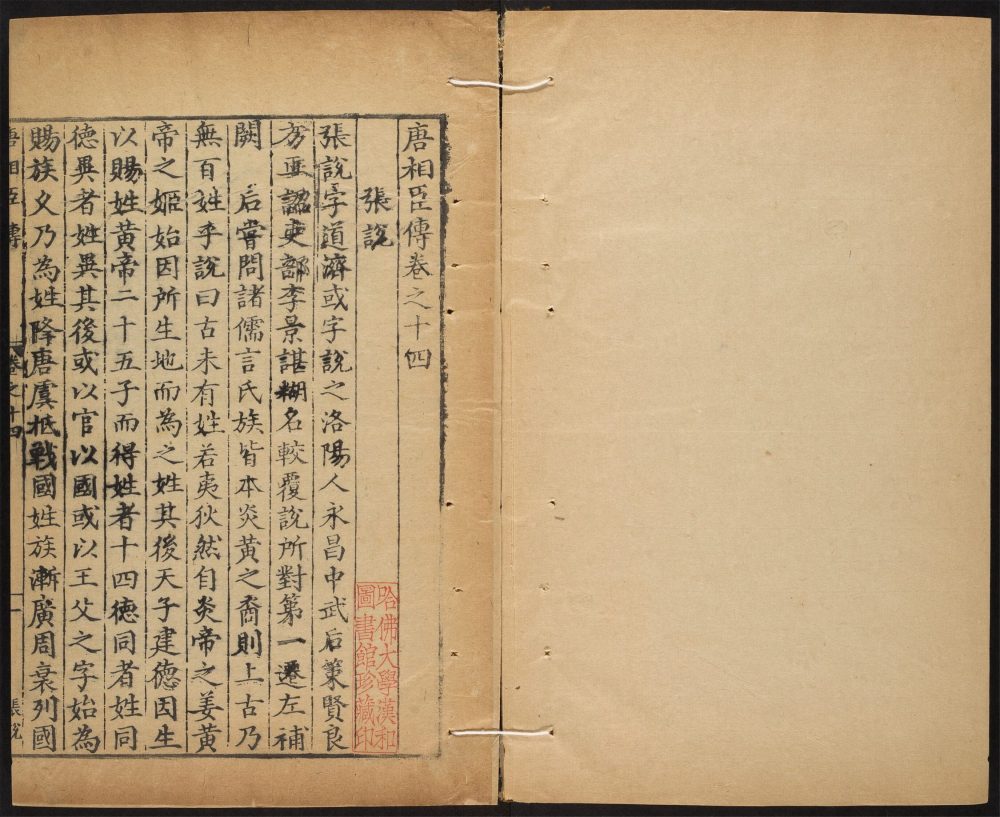 唐相臣傳卷之十四
張說
張說字道濟或字說之洛陽人永昌中武后策賢良
方正詔吏部李景諶糊名較覆說所對第一遷左補
闕 后嘗問諸儒言氏族皆本炎黃之裔則上古乃
無百姓乎說曰古未有姓若夷狄然自炎帝之姜黃
帝之姬始因所生地而為之姓其後天子建德因生
以賜姓黃帝二十五子而得姓者十四德同者姓同
德異者姓異其後或以官以國或以王父之字始為
賜族乆乃為姓降唐虞抵戰國姓族漸廣周衰列國
唐相臣傳 卷之十四 一 張說
哈佛大學漢和
圖書館珍藏印